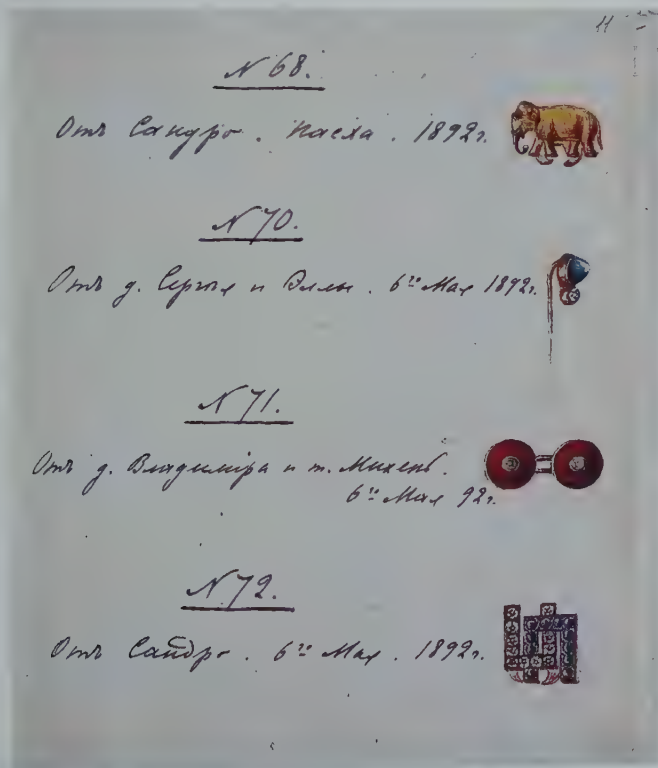 11
N 68.
Отъ Сандро. Пасха. 1892г.
N 70.
Отъ д. Сергѣя и Эллы. 6го Мая 1892г.
N 71.
Отъ д. Владиміра и т. Михень.
6го Мая 92г.
N 72.
Отъ Сандро. 6го Мая. 1892г.